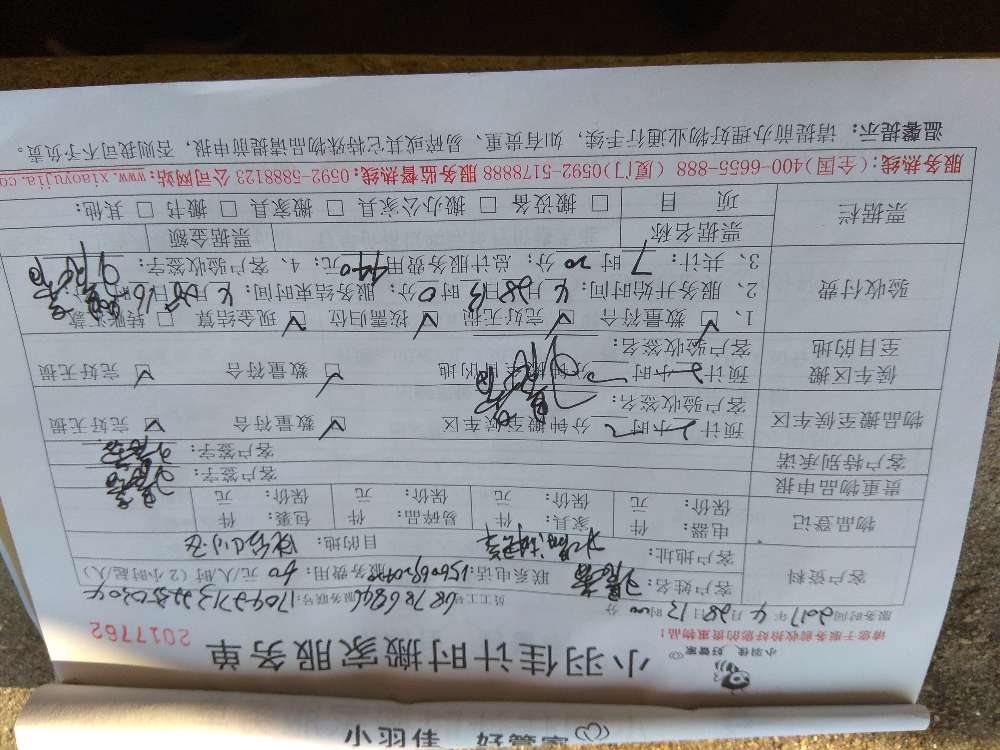 小羽佳 好管家
小羽佳计时搬家服务单
小羽佳 好管家
请您于服务前收拾好您的贵重物品！ 2017762
服务时间 2017年4月28日13时00分
客户资料 客户姓名： 联系电话： 服务费用：40元/人/时（2小时起/人）
客户地址： 目的地：
物品登记 电器： 件 家具： 件 易碎品： 件 包裹： 件
保价： 元 保价： 元 保价： 元 保价： 元
贵重物品申报 客户签字：
客户特别承诺 客户签字：
物品搬至候车区 预计2小时 分钟搬至候车区 ☑ 数量符合 ☑ 完好无损
客户验收签名：
候车区搬至目的地 预计2小时 分钟搬至目的地 ☑ 数量符合 ☑ 完好无损
客户验收签名：
验收付费 1、☑ 数量符合 ☑ 完好无损 ☑ 按需归位 ☑ 现金结算 ☐ 转账汇款
2、服务开始时间：4月28日13时0分；服务结束时间：4月28日16时 分
3、共计：7时20分；总计服务费用440元；4、客户验收签字：
票据栏 票据名称 票据金额
项目 ☐ 搬设备 ☐ 搬办公家具 ☐ 搬家具 ☐ 搬书 ☐ 其他：
服务热线：(全国)400-6655-888 (厦门)0592-5178888 服务监督热线：0592-5888123 公司网站：www.xiaoyujia.co
温馨提示：请提前办理好物业通行手续，如有贵重、易碎或其它特殊物品请提前申报，否则我司不予负责。